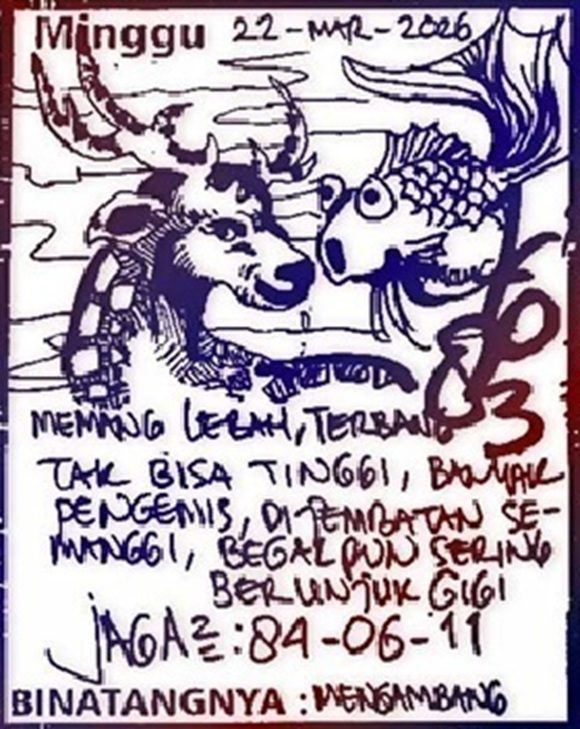 Minggu 22-MAR-2026
6
8 3
MEMANG LEBAH, TERBANG
TAK BISA TINGGI, BANYAK
PENGEMIS, DI JEMBATAN SE-
MANGGI, BEGAL PUN SERING
BERUNJUK GIGI
JAGA2 : 84-06-11
BINATANGNYA : MENGAMBANG